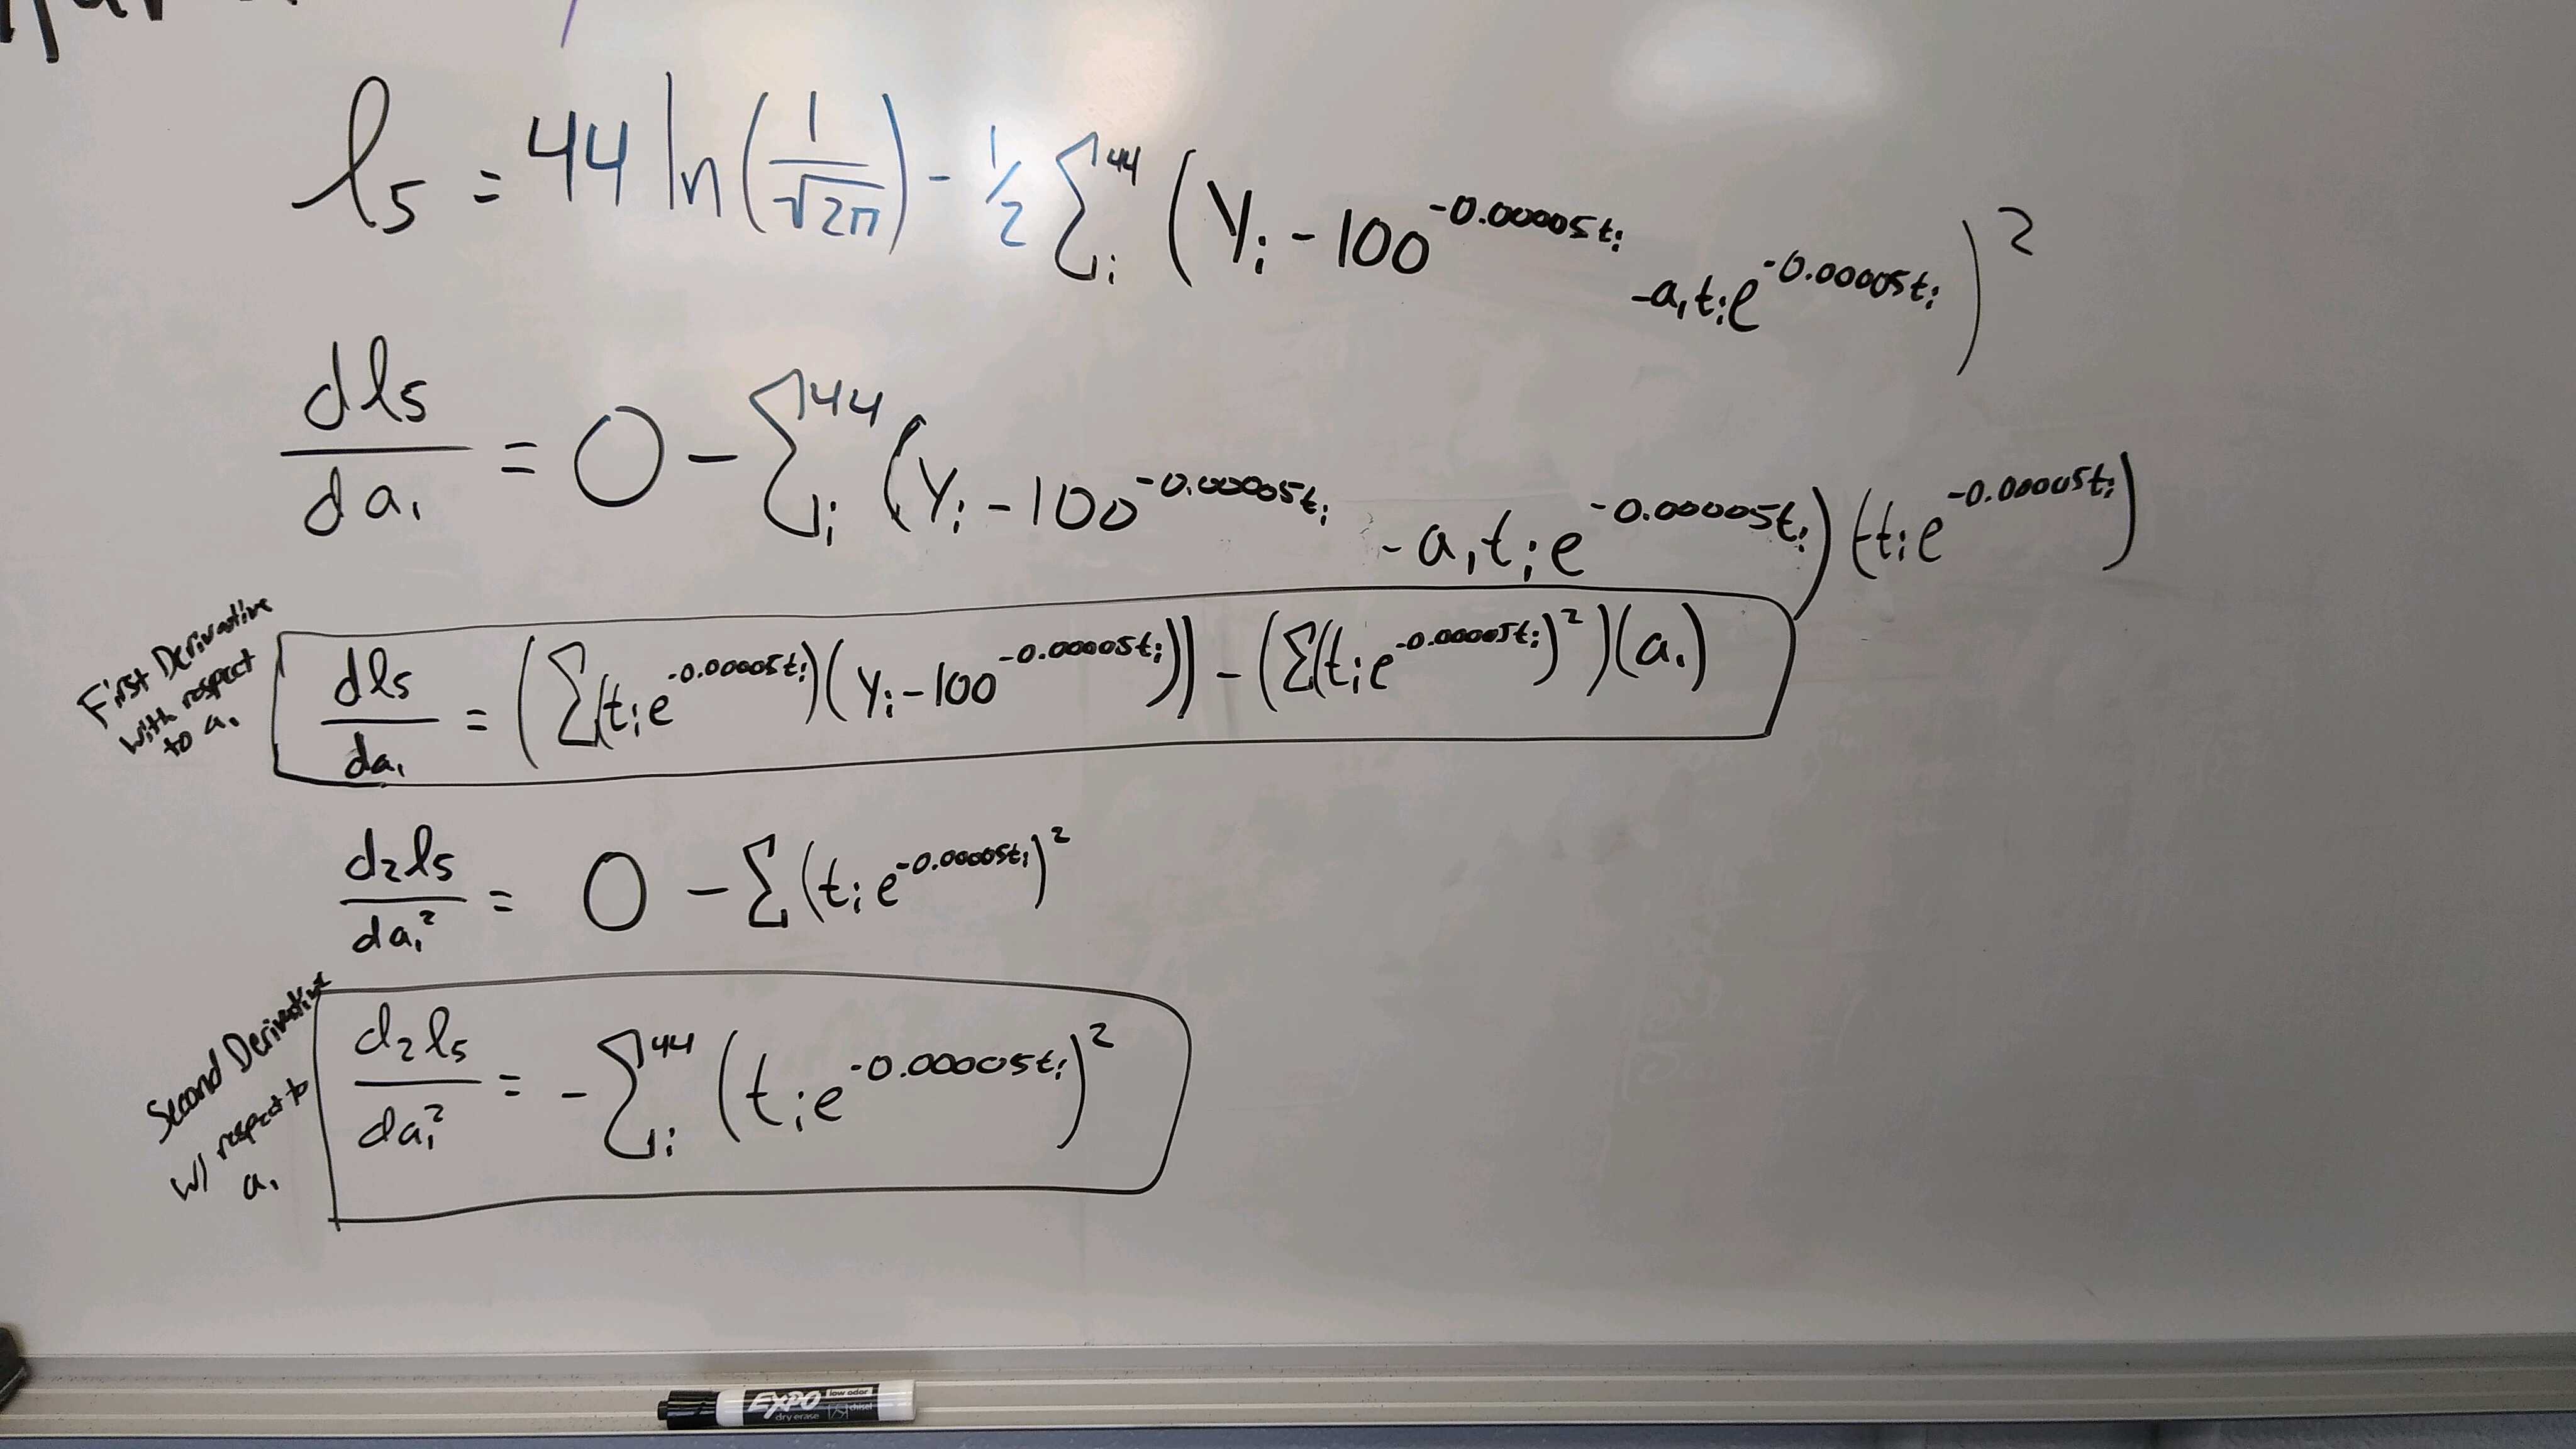 l₅ = 44 ln(1/√2π) - 1/2 Σᵢ⁴⁴ (Yᵢ - 100^(-0.00005tᵢ) - a₁tᵢe^(-0.00005tᵢ))²
dl₅/da₁ = 0 - Σᵢ⁴⁴ (Yᵢ - 100^(-0.00005tᵢ) - a₁tᵢe^(-0.00005tᵢ))(-tᵢe^(-0.00005tᵢ))
First Derivative
with respect
to a₁
dl₅/da₁ = (Σ(tᵢe^(-0.00005tᵢ))(Yᵢ - 100^(-0.00005tᵢ))) - (Σ(tᵢe^(-0.00005tᵢ))²)(a₁)
d₂l₅/da₁² = 0 - Σ(tᵢe^(-0.00005tᵢ))²
Second Derivative
w/ respect to
a₁
d₂l₅/da₁² = -Σᵢ⁴⁴ (tᵢe^(-0.00005tᵢ))²
EXPO low odor
dry erase chisel